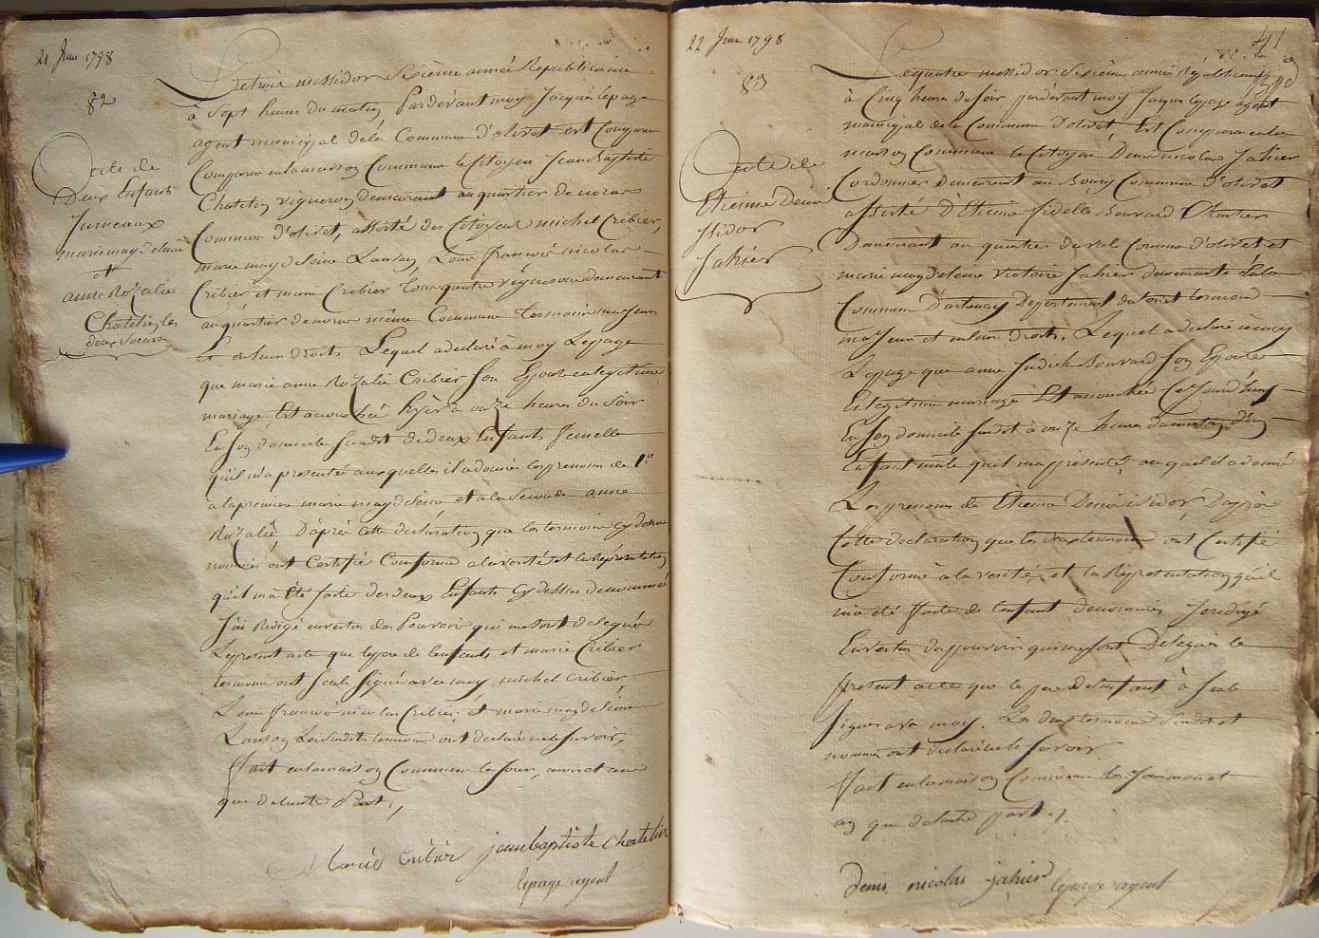 21 Juin 1798
82
Acte de
Deux Enfants
Jumeaux
marie magdelaine
et
anne Rozalie
Chatelin les
deux soeurs
Le trois messidor Sixième année Republicaine
à Sept heure du matin Pardevant moy Jacque lepage
agent municipal dela Commune d'olivet est Comparu
Comparu enlamaison Commune le Citoyen Jean Baptiste
Chatelin vigneron demeurant au quartier de
Commune d'olivet, assisté des Citoyens michel Cribier,
marie magdeleine Lanson, Louis françois nicolas
Cribier et marie Cribier tous quatre vignerons demeurant
au quartier de même Commune tesmoins majeurs
et de leurs droits Lequel a declaré à moy Lepage
que marie anne Rozalie Cribier Son Epouse enlegitime
mariage, Est accouchée hyer à onze heures du Soir
En Son domicile Susdit de deux Enfants Jemelle
qu'il m'a presentée auxquelles il a donnée les prenom de 1re
a la premiere marie magdeleine et a la Seconde anne
Rozalie, D'après cette declaration que les tesmoins cy denom
nommés ont Certifié Conforme a la verité et la Representation
qu'il m'a Eté faite des deux Enfants Cy dessus denommé
J'ai Redigé envertu des Pouvoirs qui me sont delegués
Le present acte que le pere de lenfants et marie Cribier
tesmoin ont Seule Signé avec moy, michel Cribier,
Louis françois nicolas Cribier et marie magdeleine
Lanson Les Susdits tesmoins ont declaré ne le Savoir,
Fait enlamaison Commune les Jour, mois et an
que de lautre Part,
Marie Cribier jean baptiste Chatelin
lepage agent
22 Juin 1798
41
83
Acte de
Etienne Denis
Isidor
Jahier
Le quatre messidor Sixième année Republicaine
à Cinq heure du Soir pardevant moy Jaque lepage agent
municipal de la Commune D'olivet, Est Comparu en la
maison Commune le Citoyen Denis nicolas Jahier
Cordonnier Demeurant au Bourg Commune D'olivet
assisté D'Etienne fidelle Bouvard Chartier
Demeurant au quartier du val Comune d'olivet et
marie magdeleine victoire Jahier demeurante à la
Commune D'artenay Departement du loiret tesmoins
majeur et de leur Droits. Lequel a declaré à moy
Lepage que anne Judich Bouvard Son Epouse
En legitime mariage Est accouchée Ce Jourd'huy
En Son domicile Susdit à onze heure du matin D'un
Enfant mâle qu'il ma presenté, auquel il a donné
Les prenoms de Etienne Denis isidor D'après
Cette declaration que les tesmoins ont Certifié
Conforme à la verité, et la Representation qu'il
m'a été faite de l'enfant denommée J'ai redigé
En vertu des pouvoirs qui me sont Delegués le
present acte que le pere de lenfant à Seul
Signé avec moy. Les deux tesmoins Susdit et
nommé ont declaré ne le Savoir
Fait enlamaison Commune les Jour mois et
an que de lautre part.
Denis nicolas jahier lepage agent